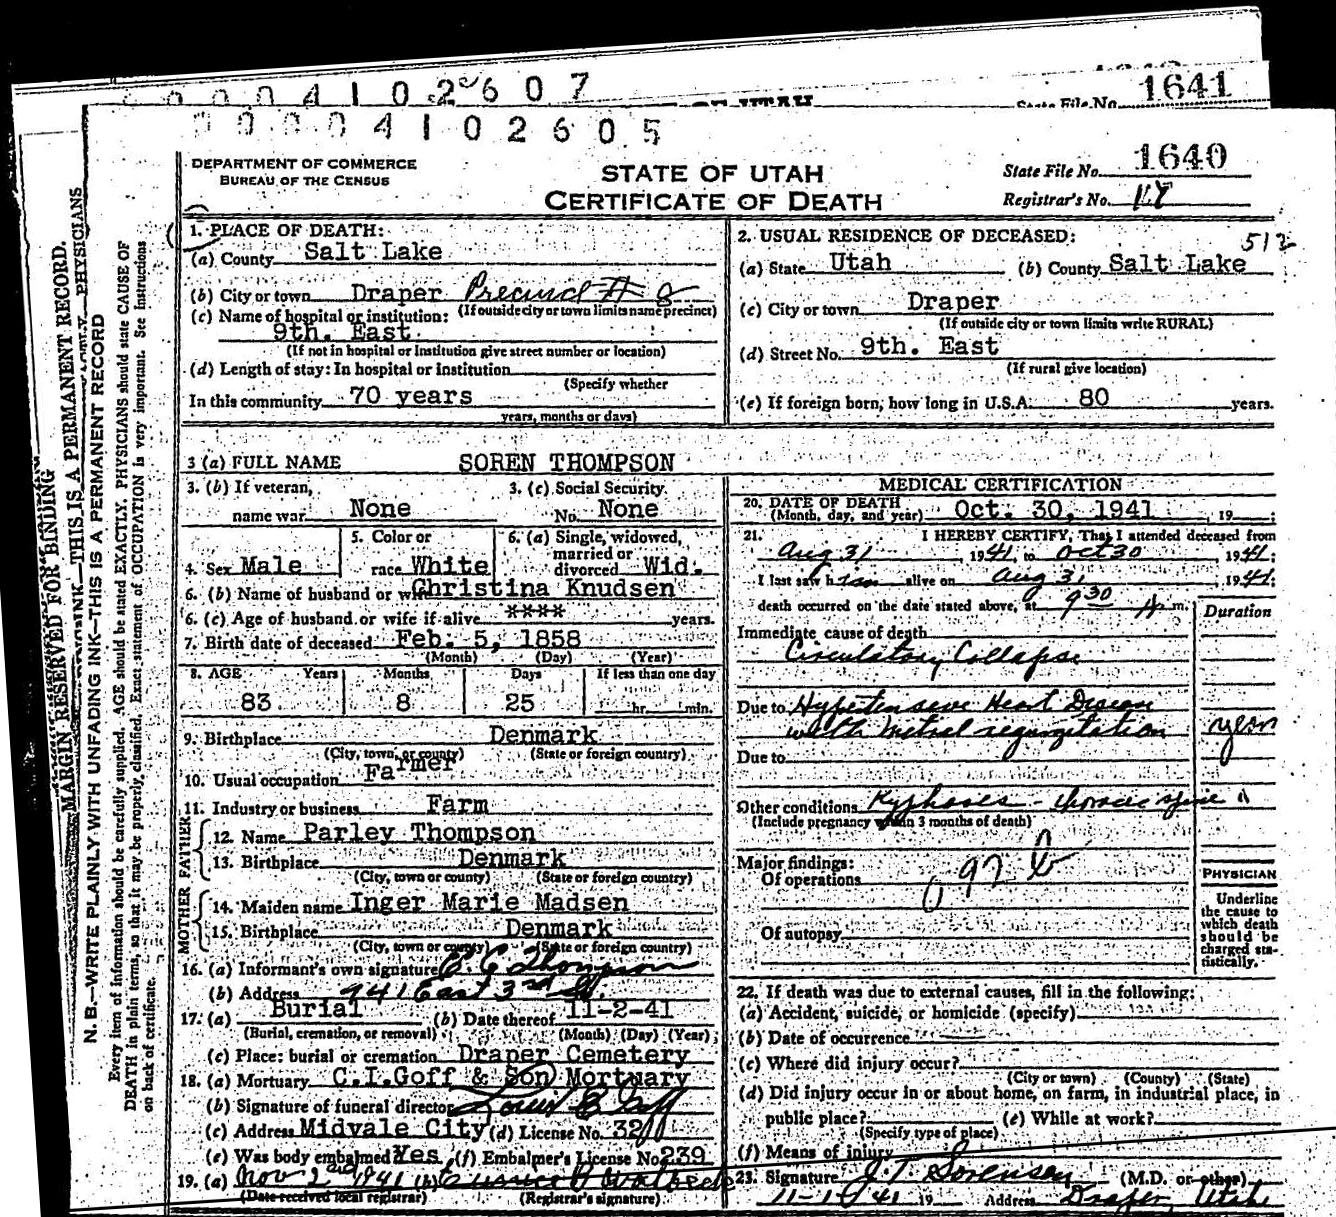 0 0 0 4 1 0 2 6 0 7
State File No. 1641
OF UTAH
0 0 0 0 4 1 0 2 6 0 5
DEPARTMENT OF COMMERCE
BUREAU OF THE CENSUS
STATE OF UTAH
CERTIFICATE OF DEATH
State File No. 1640
Registrar's No.
MARGIN RESERVED FOR BINDING
N. B.—WRITE PLAINLY WITH UNFADING INK—THIS IS A PERMANENT RECORD
THIS IS A PERMANENT RECORD.
PHYSICIANS
Every item of information should be carefully supplied. AGE should be stated EXACTLY. PHYSICIANS should state CAUSE OF
DEATH in plain terms, so that it may be properly classified. Exact statement of OCCUPATION is very important. See instructions
on back of certificate.
1. PLACE OF DEATH:
(a) County Salt Lake
(b) City or town Draper Precinct # 8
(If outside city or town limits name precinct)
(c) Name of hospital or institution:
9th. East
(If not in hospital or institution give street number or location)
(d) Length of stay: In hospital or institution
(Specify whether
In this community 70 years
years, months or days)
2. USUAL RESIDENCE OF DECEASED: 512
(a) State Utah (b) County Salt Lake
(c) City or town Draper
(If outside city or town limits write RURAL)
(d) Street No. 9th. East
(If rural give location)
(e) If foreign born, how long in U.S.A. 80 years.
3 (a) FULL NAME SOREN THOMPSON
3. (b) If veteran,
name war None
3. (c) Social Security
No. None
4. Sex Male
5. Color or
race White
6. (a) Single, widowed,
married or
divorced Wid.
6. (b) Name of husband or wife Christina Knudsen
6. (c) Age of husband or wife if alive **** years.
7. Birth date of deceased Feb. 5, 1858
(Month) (Day) (Year)
8. AGE Years Months Days If less than one day
83 8 25 hr. min.
9. Birthplace Denmark
(City, town, or county) (State or foreign country)
10. Usual occupation Farmer
11. Industry or business Farm
FATHER
12. Name Parley Thompson
13. Birthplace Denmark
(City, town or county) (State or foreign country)
MOTHER
14. Maiden name Inger Marie Madsen
15. Birthplace Denmark
(City, town or county) (State or foreign country)
16. (a) Informant's own signature Thompson
(b) Address 941 East 3rd St.
17. (a) Burial (b) Date thereof 11-2-41
(Burial, cremation, or removal) (Month) (Day) (Year)
(c) Place: burial or cremation Draper Cemetery
18. (a) Mortuary C.I.Goff & Son Mortuary
(b) Signature of funeral director Louis E Goff
(c) Address Midvale City (d) License No.
(e) Was body embalmed Yes (f) Embalmer's License No 239
19. (a) Nov 2nd 1941 (b)
(Date received local registrar) (Registrar's signature)
MEDICAL CERTIFICATION
20. DATE OF DEATH
(Month, day, and year) Oct. 30, 1941 , 19
21. I HEREBY CERTIFY, That I attended deceased from
Aug 31 , 1941 to Oct 30 1941;
I last saw him alive on Aug 31 , 1941;
death occurred on the date stated above, at 9 30 A m.
Duration
Immediate cause of death
Circulatory Collapse
Due to Hypertensive Heart Disease
with mitral regurgitation years
Due to
Other conditions Kyphosis - thoracic spine
(Include pregnancy within 3 months of death)
Major findings:
Of operations
Of autopsy
PHYSICIAN
Underline
the cause to
which death
should be
charged sta-
tistically.
22. If death was due to external causes, fill in the following:
(a) Accident, suicide, or homicide (specify)
(b) Date of occurrence
(c) Where did injury occur?
(City or town) (County) (State)
(d) Did injury occur in or about home, on farm, in industrial place, in
public place? (e) While at work?
(Specify type of place)
(f) Means of injury
23. Signature J. T. Sorensen (M.D. or other)
41 19 Address Draper, Utah